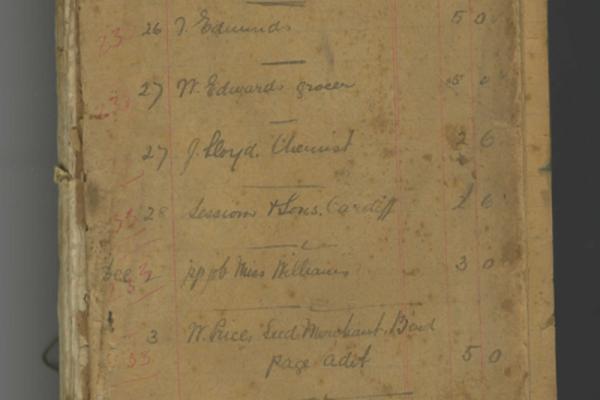 26 T. Edmunds 5 0
27 W. Edwards grocer 5 0
27 J. Lloyd. Chemist 2 6
28 Sessions & Sons. Cardiff 2 6
Dec 2 pp pb Miss Williams 3 0
3 W. Price, Seed Merchant. Band
page advt 5 0